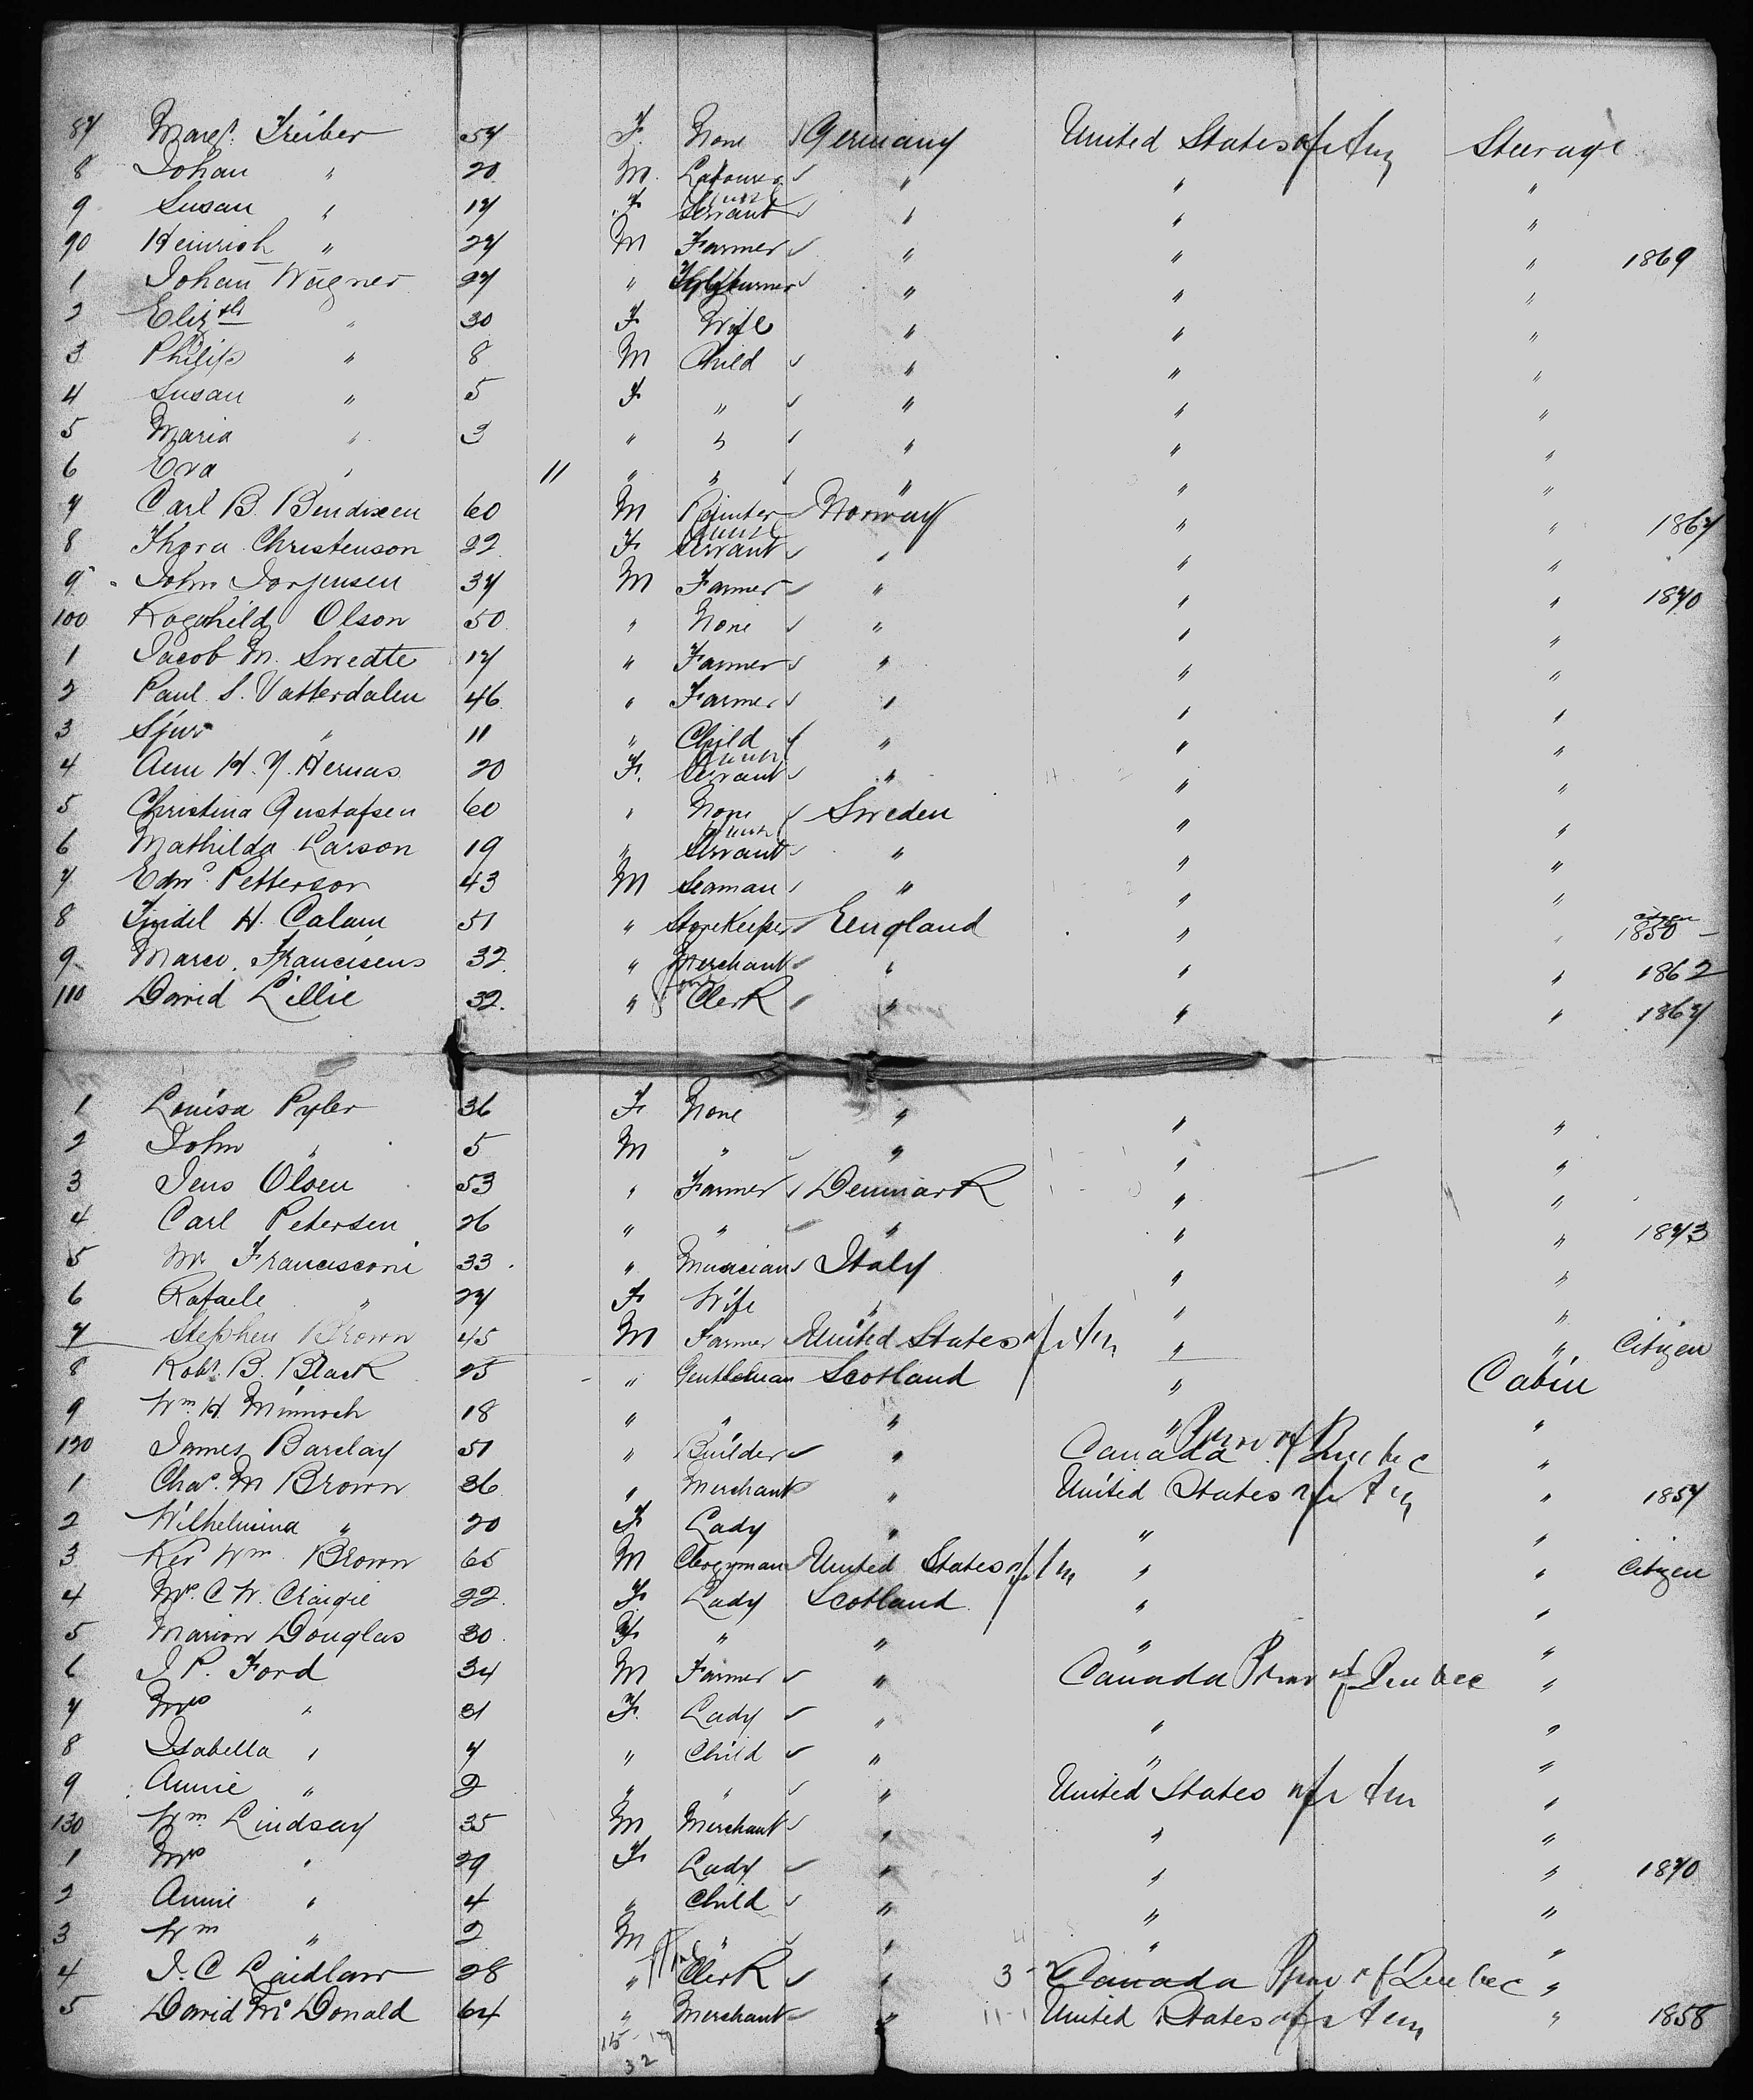 87 Margt. Treiber 57 F. None Germany United States of Am Steerage
8 Johan " 20 M. Labourer " " "
9 Susan " 17 F Servant " " "
90 Heinrich " 27 M Farmer " " " 1869
1 Johan Wagner 27 " " " "
2 Elizth " 30 F Wife " " "
3 Philip " 8 M Child " " "
4 Susan " 5 F " " " "
5 Maria " 3 " " " " "
6 Eva " 11 " " " " "
7 Carl B. Bendixen 60 M Painter Norway " " 1867
8 Thora Christenson 22 F Servant " " "
9 John Jorgensen 37 M Farmer " " " 1870
100 Ragnhild Olson 50 " None " " "
1 Jacob M. Swedte 17 " Farmer " " "
2 Paul S. Vatterdalen 46 " Farmer " " "
3 Sjur " 11 " Child " " "
4 Ann H. Y. Hernas 20 F. Servant " " "
5 Christina Gustafsen 60 " None Sweden " "
6 Mathilda Larson 19 " Servant " " "
7 Edwd. Petterson 43 M Seaman " " "
8 H. Calam 51 " Storekeeper England " " citizen 1850 -
9 Marco. Franciscus 32 " Merchant " " " 1862
110 David Lillie 32. " Clerk " " " 1867
1 Louisa Pyler 36 F None " " "
2 John " 5 M " " " "
3 Jens Olsen 53 " Farmer Denmark " "
4 Carl Petersen 26 " " " " " 1873
5 Mr Francisconi 33 " Musician Italy " "
6 Rafaele " 27 F Wife " " "
7 Stephen Brown 45 M Farmer United States of Am " " Citizen
8 Robt. B. Black 25 " Gentleman Scotland " Cabin
9 Wm. H. Minnoch 18 " " " " "
120 James Barclay 51 " Builder " Canada Prov of Quebec "
1 Chas. M Brown 36 " Merchant " United States of Am " 1857
2 Wilhelmina " 20 F Lady " " "
3 Rev Wm. Brown 65 M Clergyman United States of Am " " Citizen
4 Mrs. C W. Craigie 22. F Lady Scotland " "
5 Marion Douglas 30 F " " " "
6 J. P. Ford 34 M Farmer " Canada Prov of Quebec "
7 Mrs " 31 F. Lady " " "
8 Isabella " 7 " Child " " "
9 Annie " 2 " " " United States of Am "
130 Wm. Lindsay 35 M Merchant " " "
1 Mrs " 29 F Lady " " " 1870
2 Annie " 4 " Child " " "
3 Wm " 2 M " " " "
4 J. C Laidlaw 28 " Clerk " 3 - 2 Canada Prov of Quebec "
5 David McDonald 64 " Merchant " 11 - 1 United States of Am " 1858
15 - 17
32